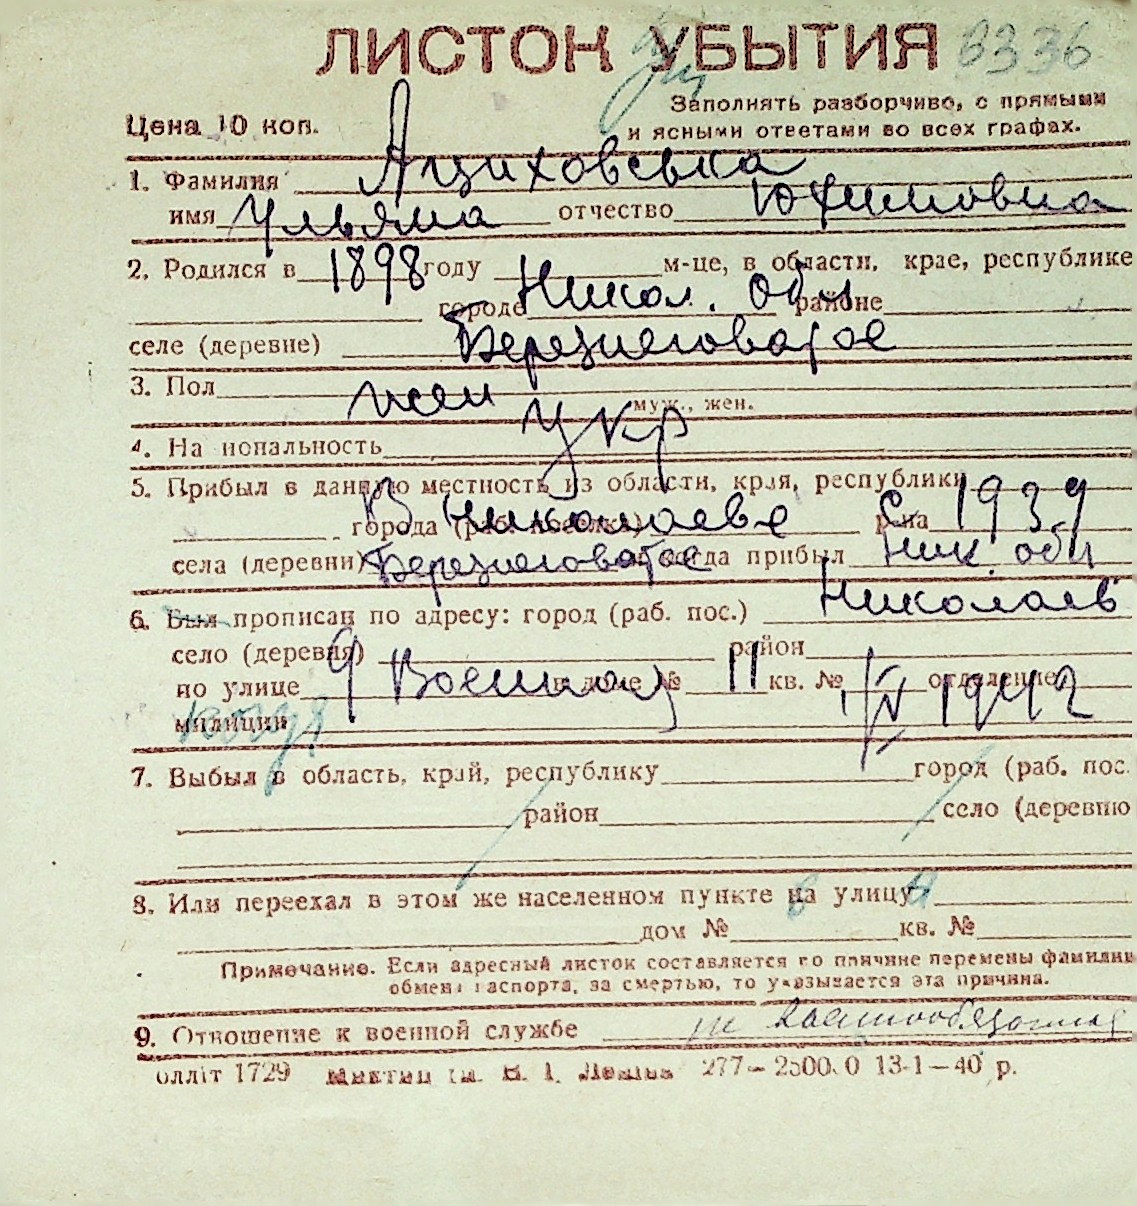 ЛИСТОК УБЫТИЯ 3336
Цена 10 коп.
Заполнять разборчиво, с прямыми
и ясными ответами во всех графах.
1. Фамилия Яциховська
имя Ульяма отчество Юхимовна
2. Родился в 1898 году м-це, в области, крае, республике
городе Никол. обл районе
селе (деревне) Березнеговатое
3. Пол жен
муж., жен.
4. На иональность Укр
5. Прибыл в данную местность из области, края, республики
города (раб. поселка) В Николаеве р-на С 1939
села (деревни) Березнеговатое когда прибыл Ник. обл
6. Был прописан по адресу: город (раб. пос.) Николаев
село (деревня) район
по улице 9 Военная в доме № 11 кв. № 1/IV отделение 1942
милиции
7. Выбыл в область, край, республику город (раб. пос.
район село (деревню
8. Или переехал в этом же населенном пункте на улицу
дом № кв. №
Примечание. Если адресный листок составляется по причине перемены фамилии
обмена паспорта, за смертью, то указывается эта причина.
9. Отношение к военной службе не военнообязанная
олліт 1729 277—25000 13-1—40 р.